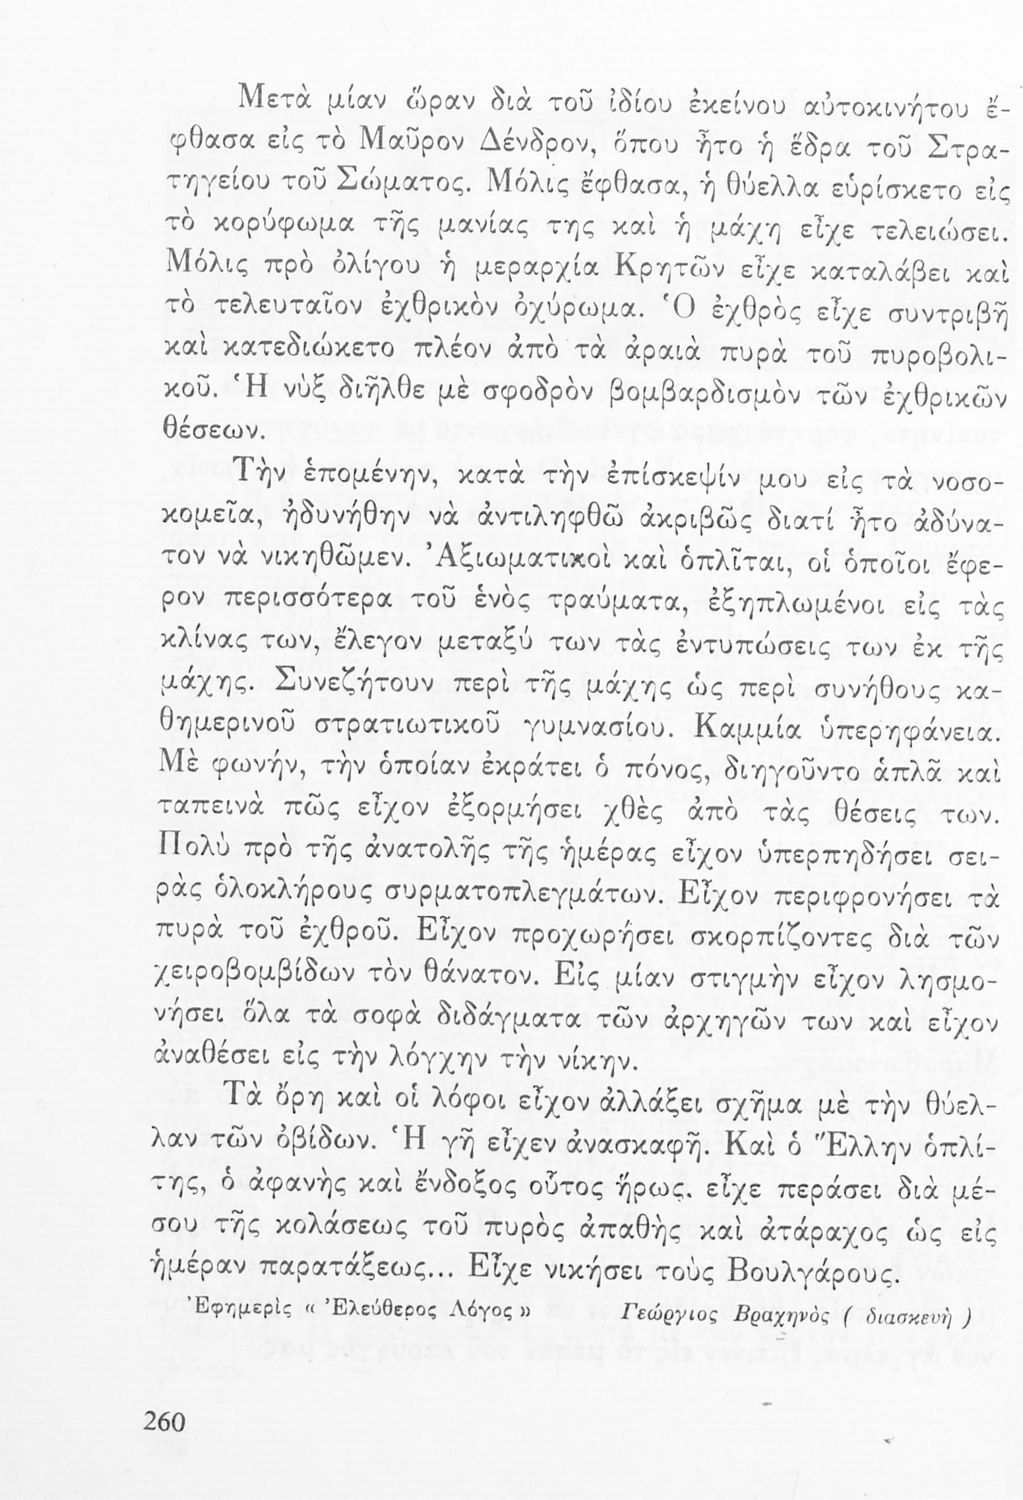 Μετὰ μίαν ὥραν διὰ τοῦ ἰδίου ἐκείνου αὐτοκινήτου ἔ-
φθασα εἰς τὸ Μαῦρον Δένδρον, ὅπου ἦτο ἡ ἕδρα τοῦ Στρα-
τηγείου τοῦ Σώματος. Μόλις ἔφθασα, ἡ θύελλα εὑρίσκετο εἰς
τὸ κορύφωμα τῆς μανίας της καὶ ἡ μάχη εἶχε τελειώσει.
Μόλις πρὸ ὀλίγου ἡ μεραρχία Κρητῶν εἶχε καταλάβει καὶ
τὸ τελευταῖον ἐχθρικὸν ὀχύρωμα. Ὁ ἐχθρὸς εἶχε συντριβῆ
καὶ κατεδιώκετο πλέον ἀπὸ τὰ ἀραιὰ πυρὰ τοῦ πυροβολι-
κοῦ. Ἡ νὺξ διῆλθε μὲ σφοδρὸν βομβαρδισμὸν τῶν ἐχθρικῶν
θέσεων.
Τὴν ἑπομένην, κατὰ τὴν ἐπίσκεψίν μου εἰς τὰ νοσο-
κομεῖα, ἠδυνήθην νὰ ἀντιληφθῶ ἀκριβῶς διατί ἦτο ἀδύνα-
τον νὰ νικηθῶμεν. Ἀξιωματικοὶ καὶ ὁπλῖται, οἱ ὁποῖοι ἔφε-
ρον περισσότερα τοῦ ἑνὸς τραύματα, ἐξηπλωμένοι εἰς τὰς
κλίνας των, ἔλεγον μεταξύ των τὰς ἐντυπώσεις των ἐκ τῆς
μάχης. Συνεζήτουν περὶ τῆς μάχης ὡς περὶ συνήθους κα-
θημερινοῦ στρατιωτικοῦ γυμνασίου. Καμμία ὑπερηφάνεια.
Μὲ φωνήν, τὴν ὁποίαν ἐκράτει ὁ πόνος, διηγοῦντο ἁπλᾶ καὶ
ταπεινὰ πῶς εἶχον ἐξορμήσει χθὲς ἀπὸ τὰς θέσεις των.
Πολὺ πρὸ τῆς ἀνατολῆς τῆς ἡμέρας εἶχον ὑπερπηδήσει σει-
ρὰς ὁλοκλήρους συρματοπλεγμάτων. Εἶχον περιφρονήσει τὰ
πυρὰ τοῦ ἐχθροῦ. Εἶχον προχωρήσει σκορπίζοντες διὰ τῶν
χειροβομβίδων τὸν θάνατον. Εἰς μίαν στιγμὴν εἶχον λησμο-
νήσει ὅλα τὰ σοφὰ διδάγματα τῶν ἀρχηγῶν των καὶ εἶχον
ἀναθέσει εἰς τὴν λόγχην τὴν νίκην.
Τὰ ὄρη καὶ οἱ λόφοι εἶχον ἀλλάξει σχῆμα μὲ τὴν θύελ-
λαν τῶν ὀβίδων. Ἡ γῆ εἶχεν ἀνασκαφῆ. Καὶ ὁ Ἕλλην ὁπλί-
της, ὁ ἀφανὴς καὶ ἔνδοξος οὗτος ἥρως. εἶχε περάσει διὰ μέ-
σου τῆς κολάσεως τοῦ πυρὸς ἀπαθὴς καὶ ἀτάραχος ὡς εἰς
ἡμέραν παρατάξεως... Εἶχε νικήσει τοὺς Βουλγάρους.
Ἐφημερὶς « Ἐλεύθερος Λόγος » Γεώργιος Βραχηνὸς ( διασκευὴ )
260